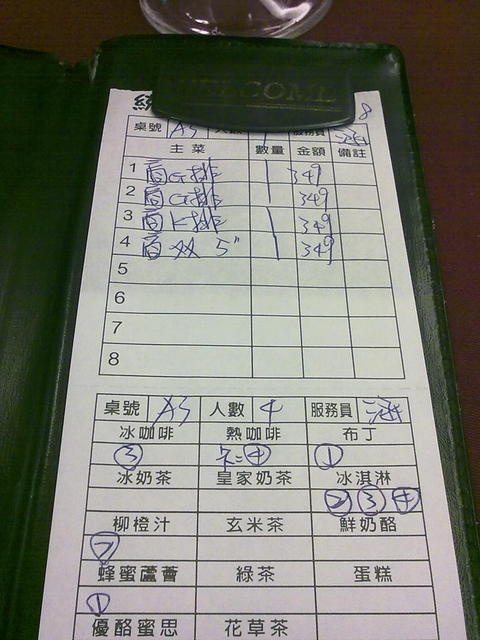 WELCOME
統 8
桌號 A3 人數 服務員 涵
主菜 數量 金額 備註
1 商G排 1 349
2 商G排 349
3 商K排 1 349
4 商双 5" 1 349
5
6
7
8
桌號 A3 人數 4 服務員 涵
冰咖啡 熱咖啡 布丁
③ ④ ①
冰奶茶 皇家奶茶 冰淇淋
② ③ ④
柳橙汁 玄米茶 鮮奶酪
蜂蜜蘆薈 綠茶 蛋糕
①
優酪蜜思 花草茶